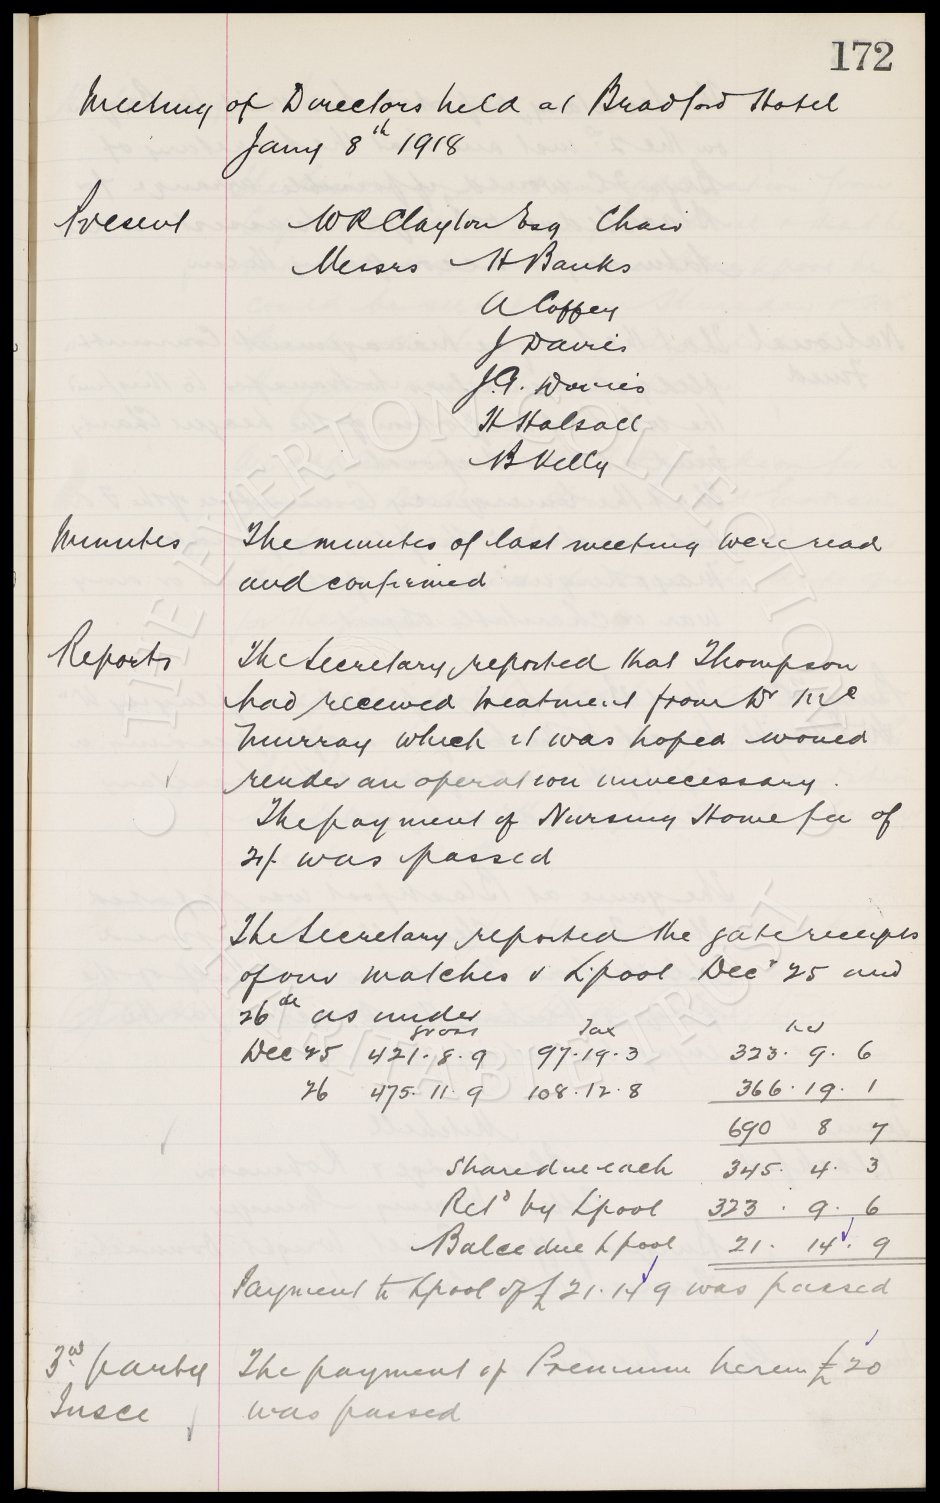 172
Meeting of Directors held at Bradford Hotel
Jany 8th 1918
Present W R Clayton Esq Chair
Messrs H Banks
A Coffey
J Davies
J.G. Davies
H Halsall
B Kelly
Minutes The minutes of last meeting were read
and confirmed
Reports The Secretary reported that Thompson
had received treatment from Dr Mc
Murray which it was hoped would
render an operation unnecessary.
The payment of Nursing Home fee of
21/- was passed
The Secretary reported the gate receipts
of our matches v L'pool Decr 25 and
26th as under
gross Tax net
Dec 25 421.8.9 97.19.3 323.9.6
26 475.11.9 108.12.8 366.19.1
690 8 7
Share due each 345.4.3
Retd by L'pool 323.9.6
Balce due Lpool 21.14.9
Payment to Lpool of £21.14.9 was passed
3rd party The payment of Premium herein £20
Insce was passed
THE EVERTON COLLECTION